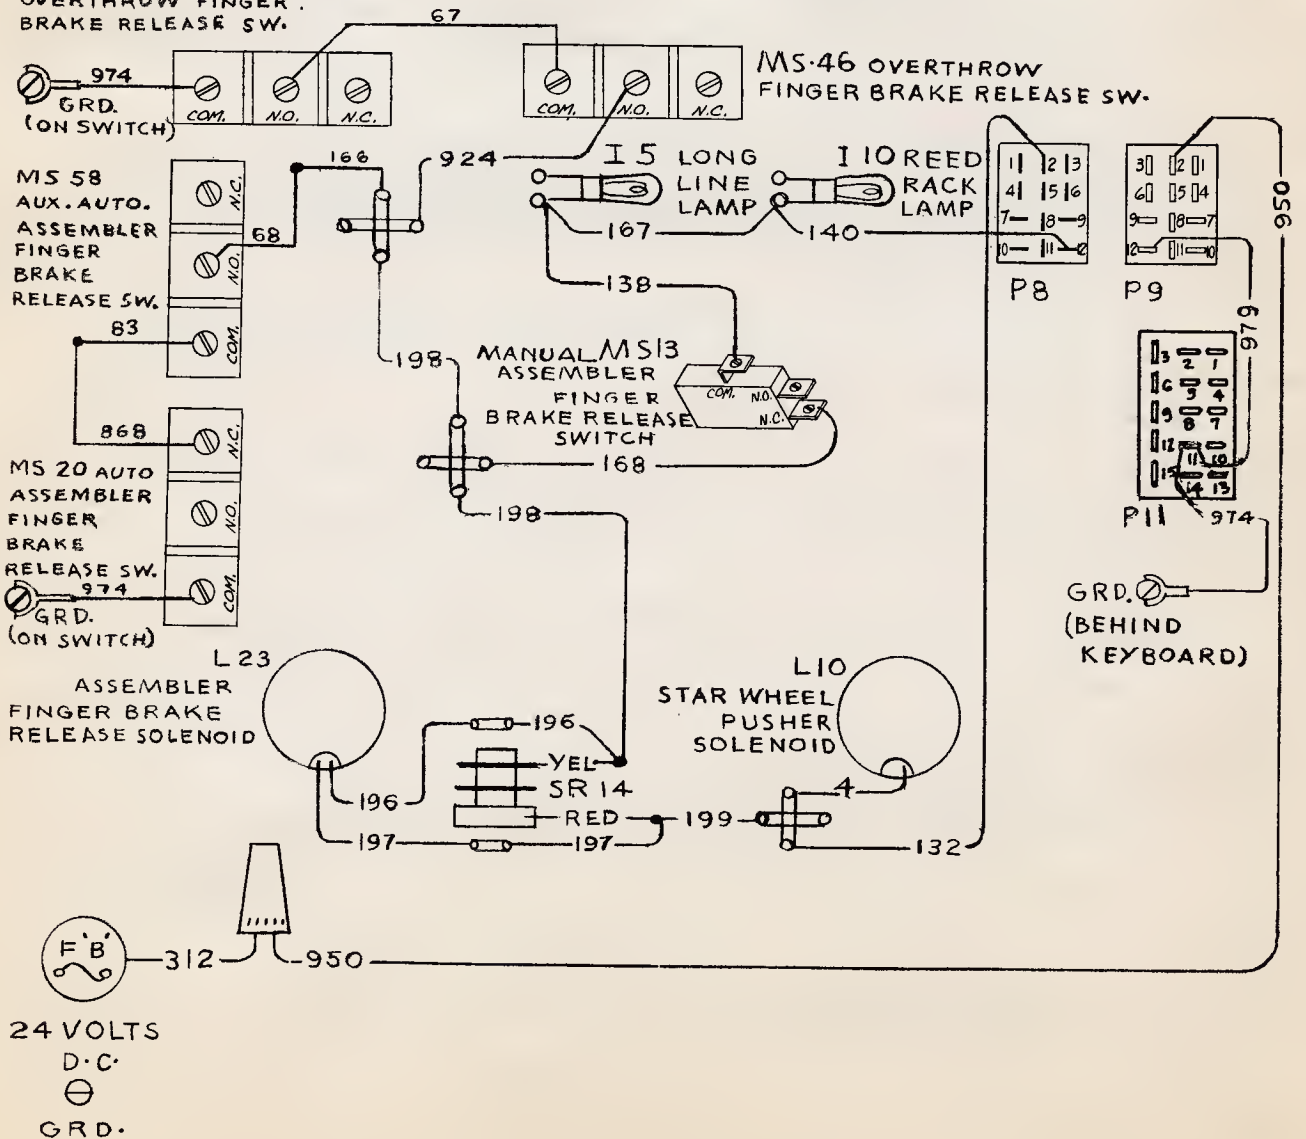 OVERTHROW FINGER
BRAKE RELEASE SW.
67
974
GRD.
(ON SWITCH)
COM. N.O. N.C.
COM. N.O. N.C.
MS·46 OVERTHROW
FINGER BRAKE RELEASE SW.
MS 58
AUX. AUTO.
ASSEMBLER
FINGER
BRAKE
RELEASE SW.
N.C.
N.O.
COM.
166
68
83
924
I5 LONG
LINE
LAMP
I10 REED
RACK
LAMP
167
140
138
1 2 3
4 5 6
7 8 9
10 11 12
P8
3 2 1
6 5 4
9 8 7
12 11 10
P9
950
979
3 2 1
6 5 4
9 8 7
12 11 10
15 14 13
P11
974
GRD.
(BEHIND
KEYBOARD)
198
MANUAL MS13
ASSEMBLER
FINGER
BRAKE RELEASE
SWITCH
COM. N.O.
N.C.
168
198
868
MS 20 AUTO
ASSEMBLER
FINGER
BRAKE
RELEASE SW.
N.C.
N.O.
COM.
974
GRD.
(ON SWITCH)
L23
ASSEMBLER
FINGER BRAKE
RELEASE SOLENOID
196
YEL
SR 14
RED
196
197
197
199
L10
STAR WHEEL
PUSHER
SOLENOID
4
132
F'B'
312
950
24 VOLTS
D.C.
GRD.